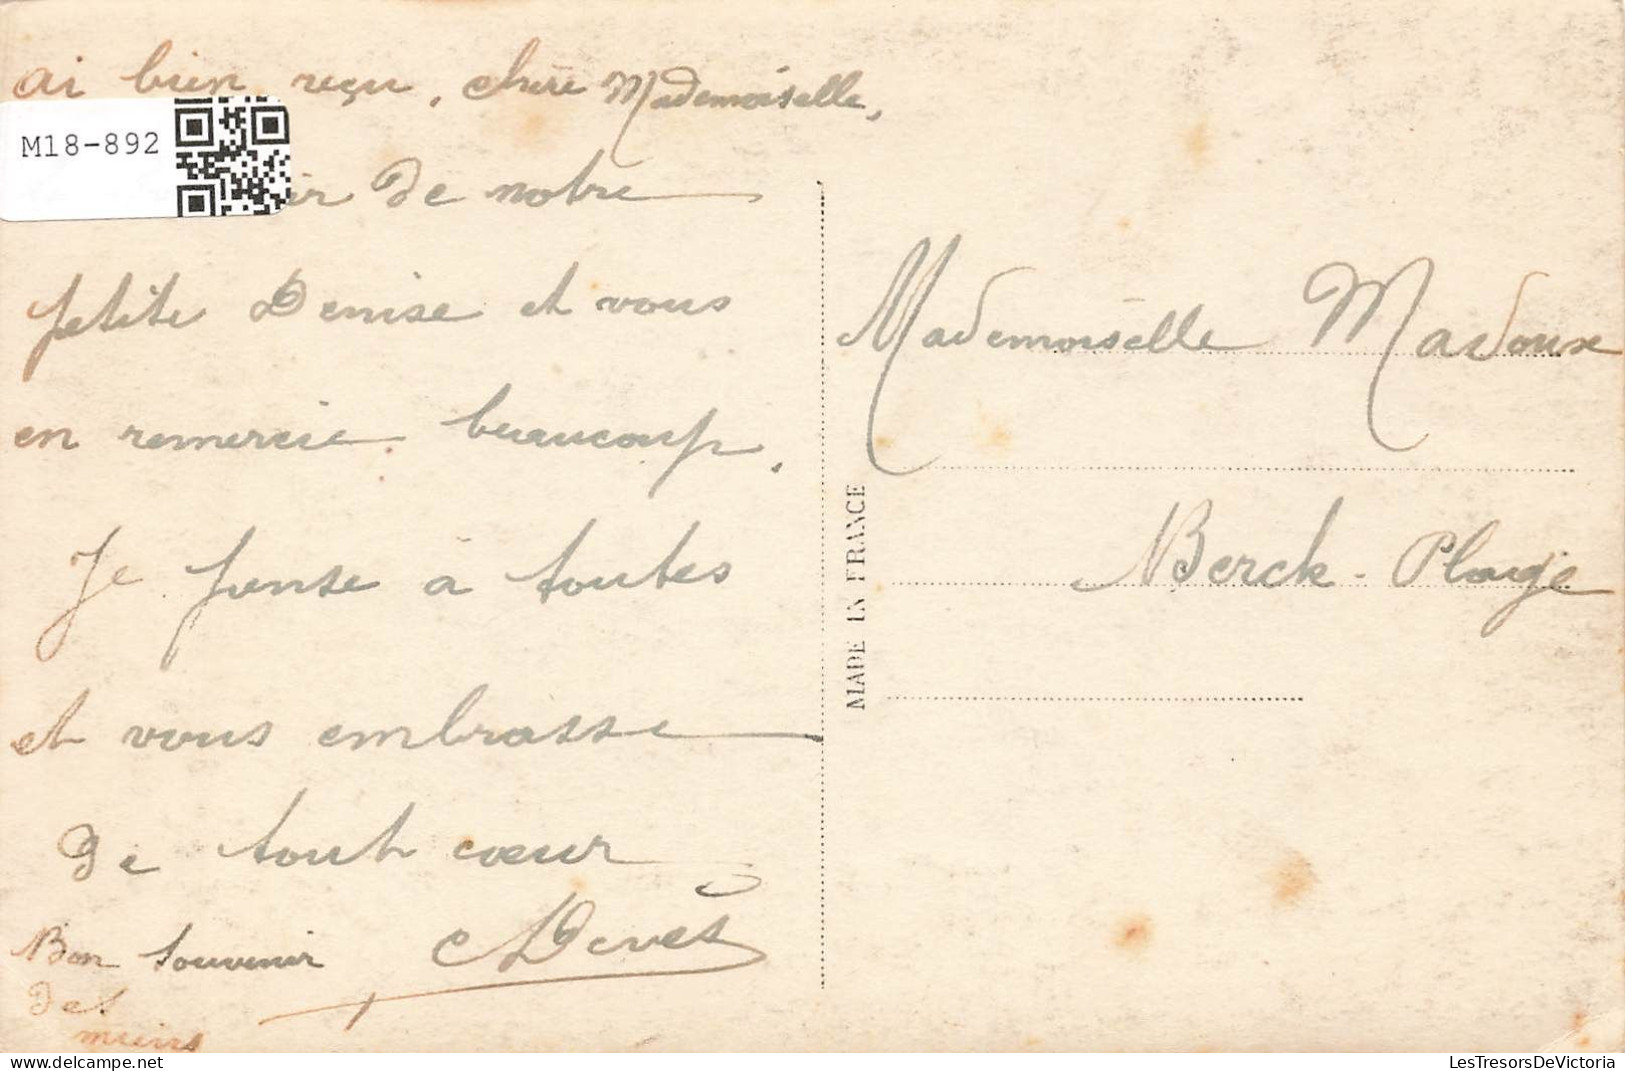 ai bien reçu, chère Mademoiselle,
M18-892
de notre
petite Denise et vous
en remercie beaucoup.
Je pense à toutes
et vous embrasse
de tout cœur
Bon souvenir
des
miens
Mademoiselle Madoux
Berck-Plage
MADE IN FRANCE
LesTresorsDeVictoria